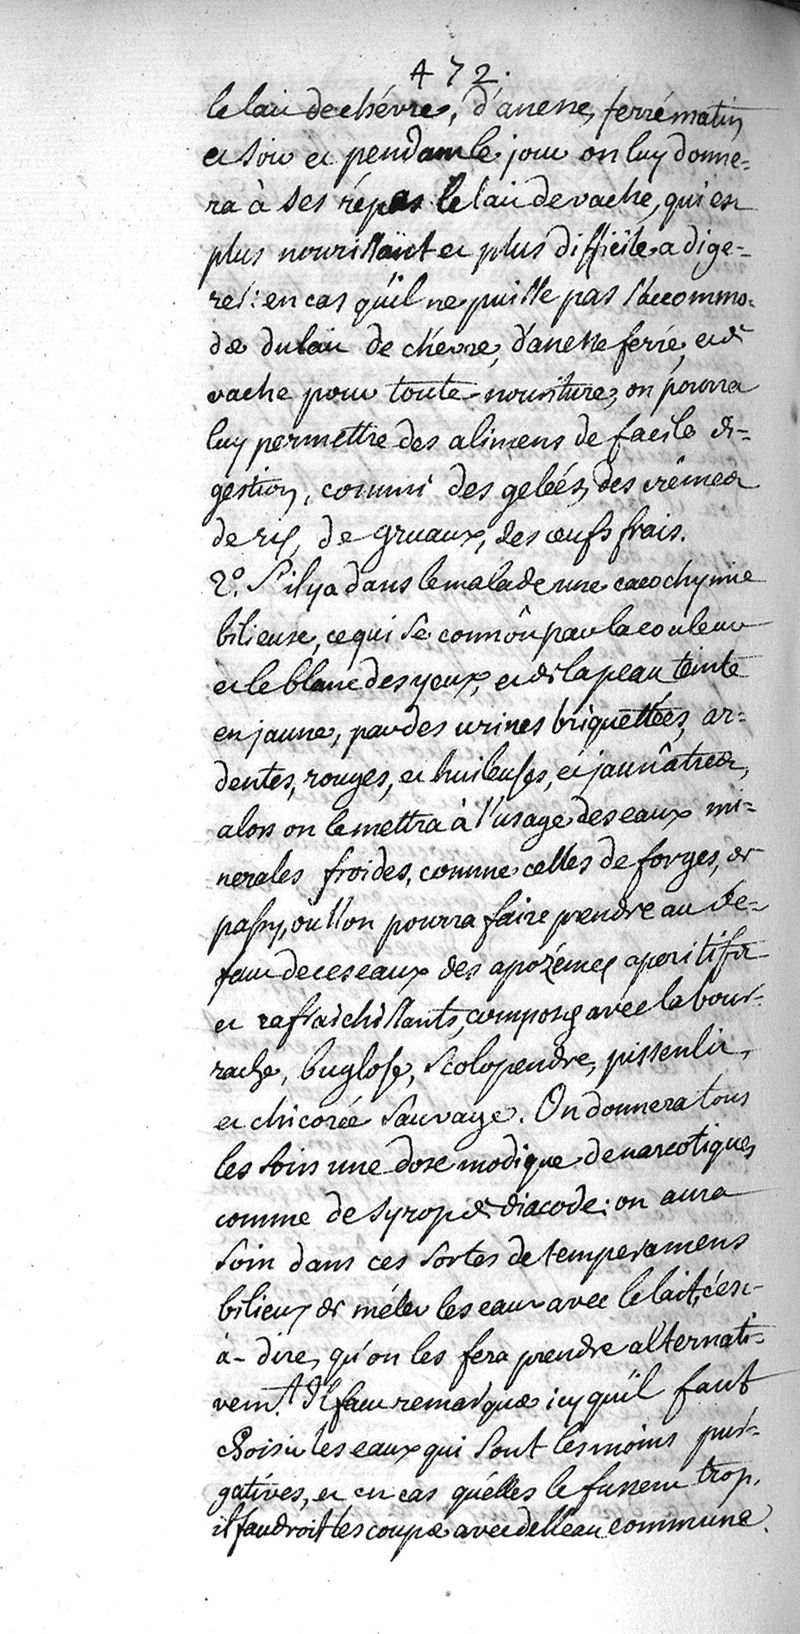 472.
le lait de chévre, d'anesse, ferré matin
et soir et pendant le jour on luy donne-
ra à ses répas le lait de vache, qui est
plus nourissant et plus difficile a dige-
rer: en cas qu'il ne puisse pas s'accommo-
der du lait de chevre, d'anesse ferré, et de
vache pour toute nouriture, on pourra
luy permettre des alimens de facile di-
gestion, comme des gelées, des crêmes
de ris, de gruaux, des œufs frais.
2.º S'il y a dans le malade une cacochymie
bilieuse, ce qui se connôit par la couleur
et le blanc des yeux, et de la peau teinte
en jaune, par des urines briquettées, ar-
dentes, rouges, et huileuses, et jaunâtres,
alors on le mettra à l'usage des eaux mi-
nerales froides, comme celles de forges, de
passy, où l'on pourra faire prendre au de-
faut de ces eaux des apozémes aperitifs
et rafraichissants, composés avec la bour-
rache, buglose, scolopendre, pissenlit,
et chicorée sauvage. On donnera tous
les soirs une dose modique de narcotiques
comme de syrop de diacode: on aura
soin dans ces sortes de temperamens
bilieux de méler les eaux avec le lait, c'est-
à-dire, qu'on les fera prendre alternati-
vem.t Il faut remarquer icy qu'il faut
choisir les eaux qui sont les moins pur-
gatives, et en cas qu'elles le fussent trop,
il faudroit les couper avec de l'eau commune.